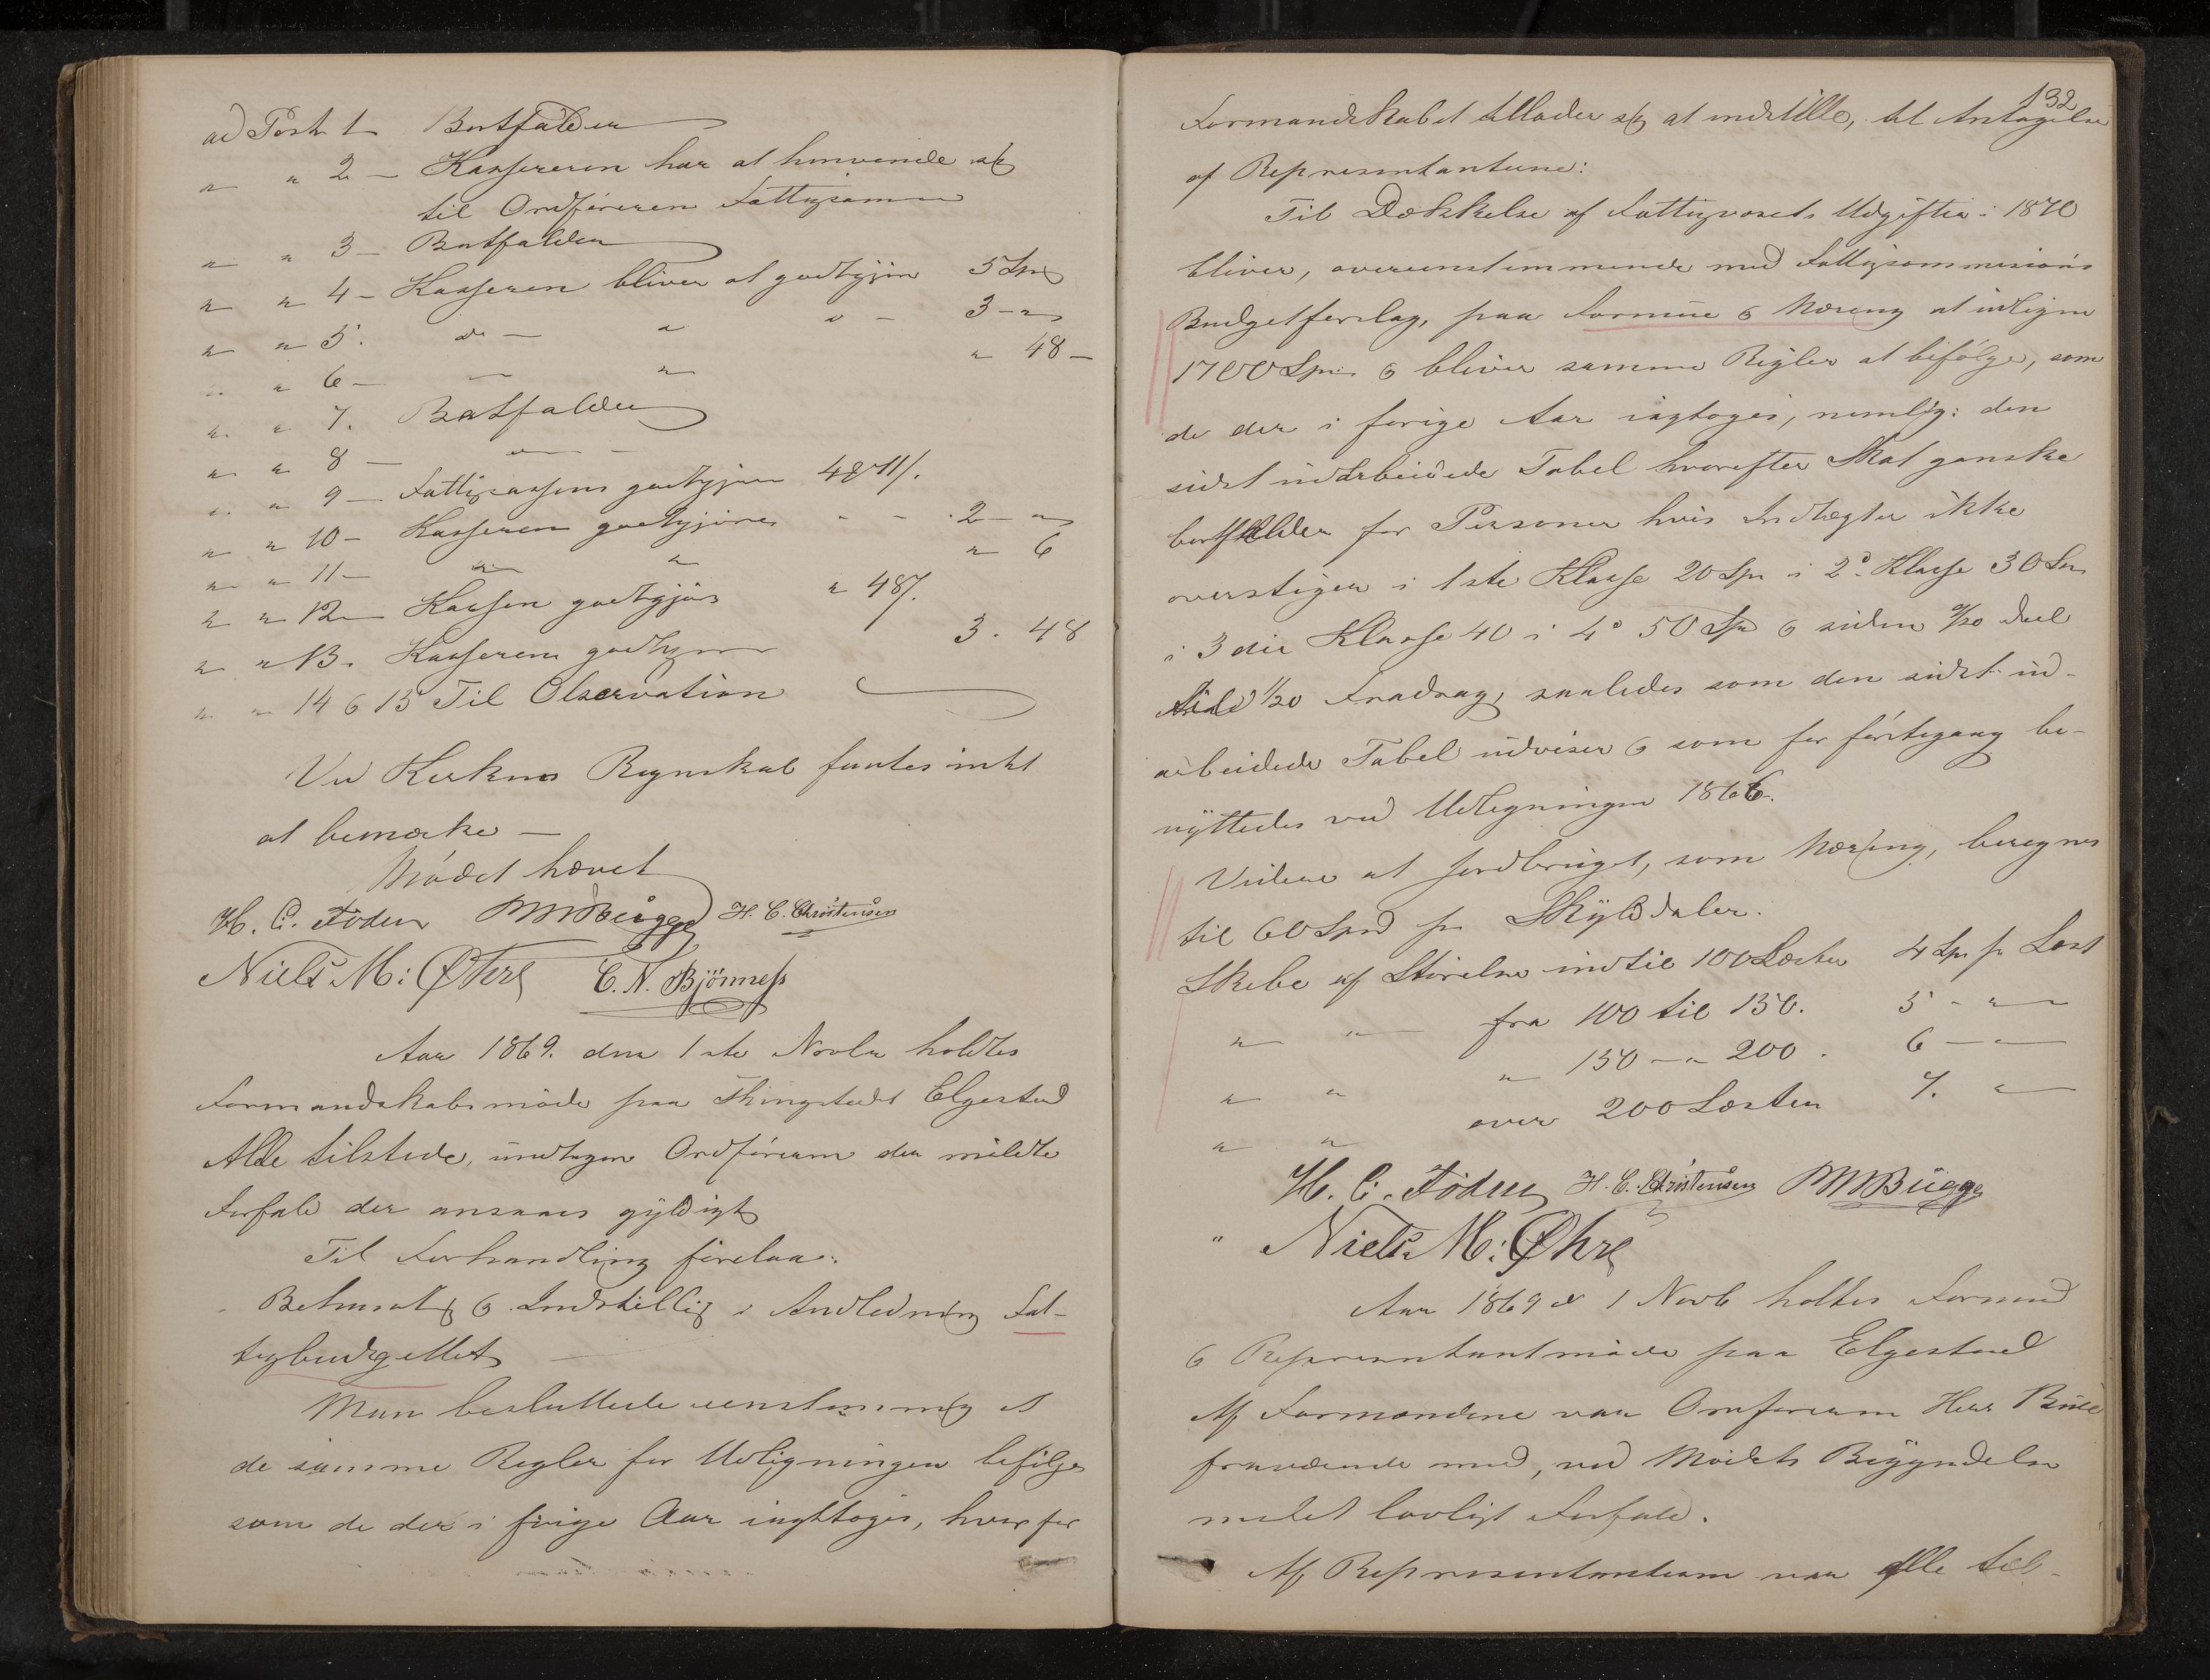 ad Post 1 Bortfalder
" " 2 – Kassereren har at henvende sig
til Ordføreren Fattigcomm
" " 3 – Bortfalder
" " 4 – Kasseren bliver at godtgjøre 5 Spd
" " 5. do – " " – 3 – "
" " 6 – — " " 48 –
" " 7. Bortfalder
" " 8 – " –
" " 9 – Fattigcassens godtgjøres 48 /.
" " 10 – Kasseren godtgjøres - - 2 – "
" " 11 – " " " 6
" " 12 – Kassen godtgjøres " 48/.
" " 13. Kasseren godtgjøres 3. 48
" " 14 & 15 Til Observation
Ved Kirkens Regnskab fantes intet
at bemærke –
Mødet hævet
H. C. Foden MMBugge H. C. Christensen
Niels M: Øhre C. N. Bjönness
Aar 1869. den 1ste Novbr holdtes
Formandskabsmøde paa Thingstedet Elgestad
Alle tilstede, undtagen Ordføreren der meldte
Forfald der ansaaes gyldigt
Til Forhandling forelaa:
Betænkn & Indstilling i Andledning Fat-
tigbudgettet
Man besluttede eenstemmig at
de samme Regler for Udligningen befølges
som de der i forige Aar iagttoges, hvorfor
132
Formandskabet tillader sig at indstille, til Antagelse
af Representanterne:
Til Dækkelse af Fattigvæsets Udgifter i 1870
bliver, overeenstemmende med Fattigcommisions
Budgetforslag, paa Formue & Næring at udligne
1700 Spd & bliver samme Regler at befølge, som
de der i forige Aar iagtoges, nemlig: den
sidst udarbeidede Tabel hvorefter Skat ganske
bortfalder for Personer hvis Indtægter ikke
overstiger i 1ste Klasse 20 Spd i 2d Klasse 30 Spd
i 3die Klasse 40 i 4d 50 Spd & siden /20 deel
1/20 Fradrag, saaledes som den sidst ud-
arbeidede Tabel udviser & som for førstegang be-
nyttedes ved Udligningen 1866.
Videre at Jordbruget, som Næring, beregnes
til 60 Spd pr Skylddaler.
Skibe af Størrelse indtil 100 Læster 4 Spd pr Læst
" " fra 100 til 150. 5 - "
" " " 150 – " 200. 6 – "
" " over 200 Læster 7. "
H. C. Foden H. C. Christensen MMBugge
" Niels M: Øhre
Aar 1869 d 1 Novb holtes Formand
& Representantmøde paa Elgestad
Af Formændene var Ordføreren Herr
fraværende med, ved Mødets Begyndelse
meldt lovligt Forfald.
Af Representanterne var alle til-